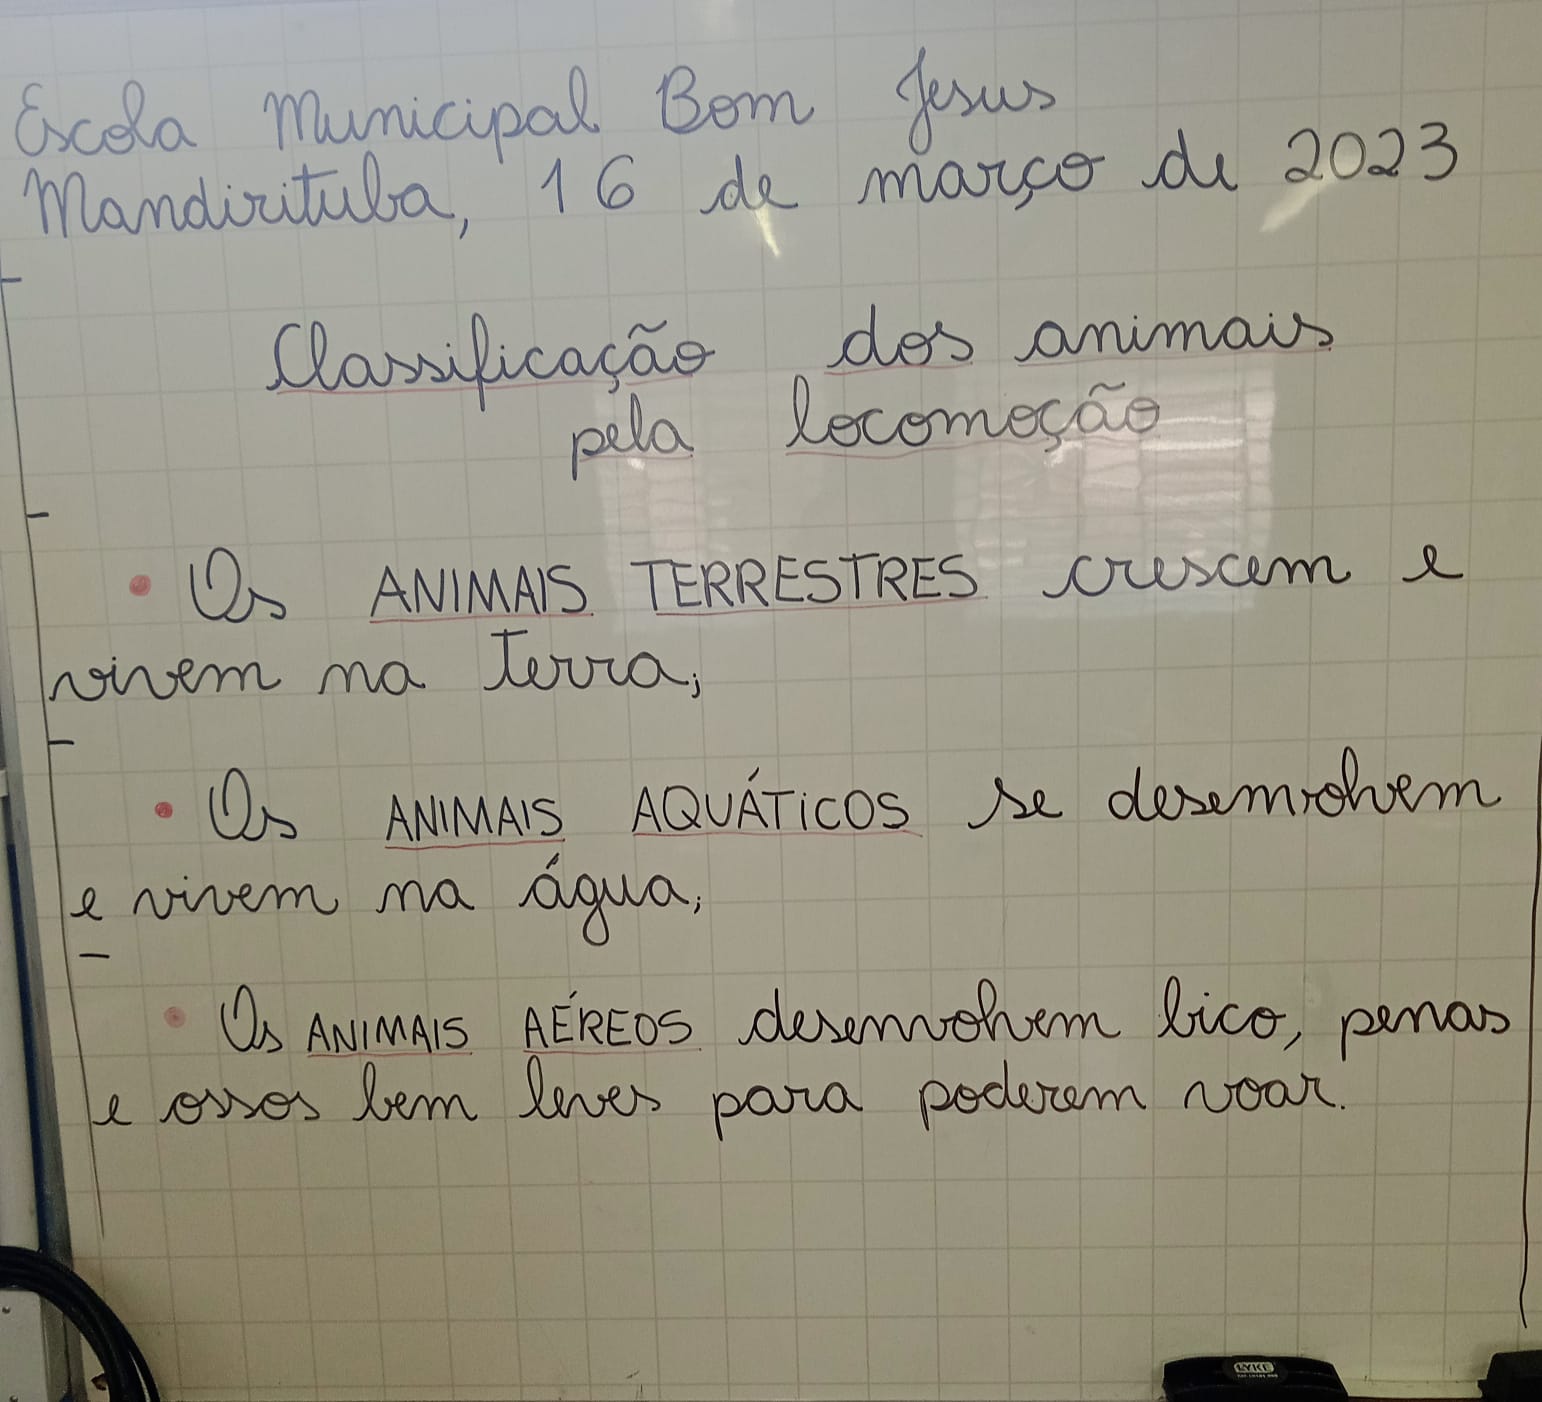 Escola Municipal Bom Jesus
Mandirituba, 16 de março de 2023
Classificação dos animais
pela locomoção
• Os ANIMAIS TERRESTRES crescem e
vivem na terra;
• Os ANIMAIS AQUÁTICOS se desenvolvem
e vivem na água;
• Os ANIMAIS AÉREOS desenvolvem bico, penas
e ossos bem leves para poderem voar.
LYKE